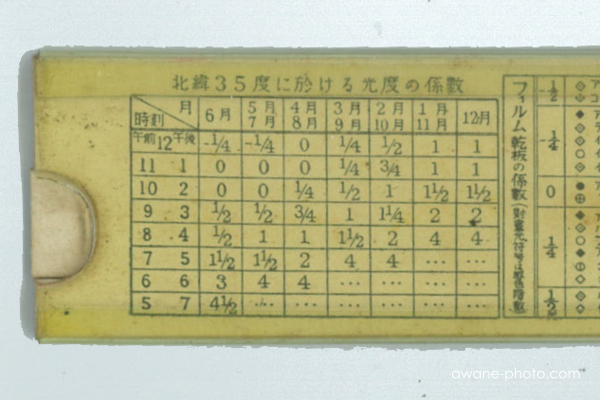 北緯35度に於ける光度の係數
月 6月 5月7月 4月8月 3月9月 2月10月 1月11月 12月
時刻
午前12午後 -1/4 -1/4 0 1/4 1/2 1 1
11 1 0 0 0 1/4 3/4 1 1
10 2 0 0 1/4 1/2 1 1 1/2 1 1/2
9 3 1/2 1/2 3/4 1 1 1/4 2 2
8 4 1/2 1 1 1 1/2 2 4 4
7 5 1 1/2 1 1/2 2 4 4 ... ...
6 6 3 4 4 ... ... ... ...
5 7 4 1/2 ... ... ... ... ... ...
フィルム乾板の係數
-1/2
-1/4
0
1/4
1/2
awane-photo.com